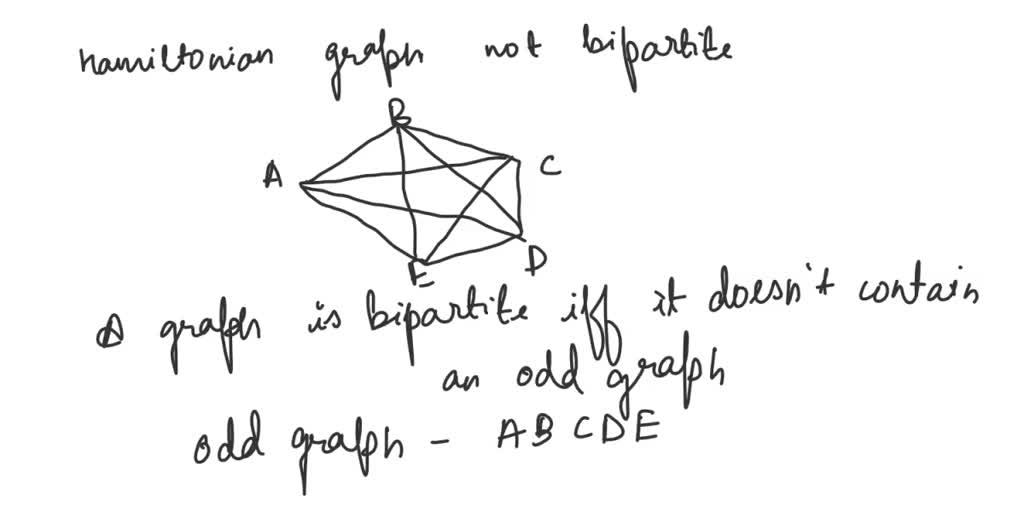 hamiltonian graph not bipartite
B
A
C
D
E
A graph is bipartite iff it doesn't contain
an odd graph
odd graph - ABCDE